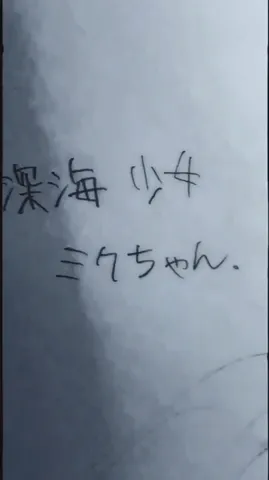 深海少女
ミクちゃん.